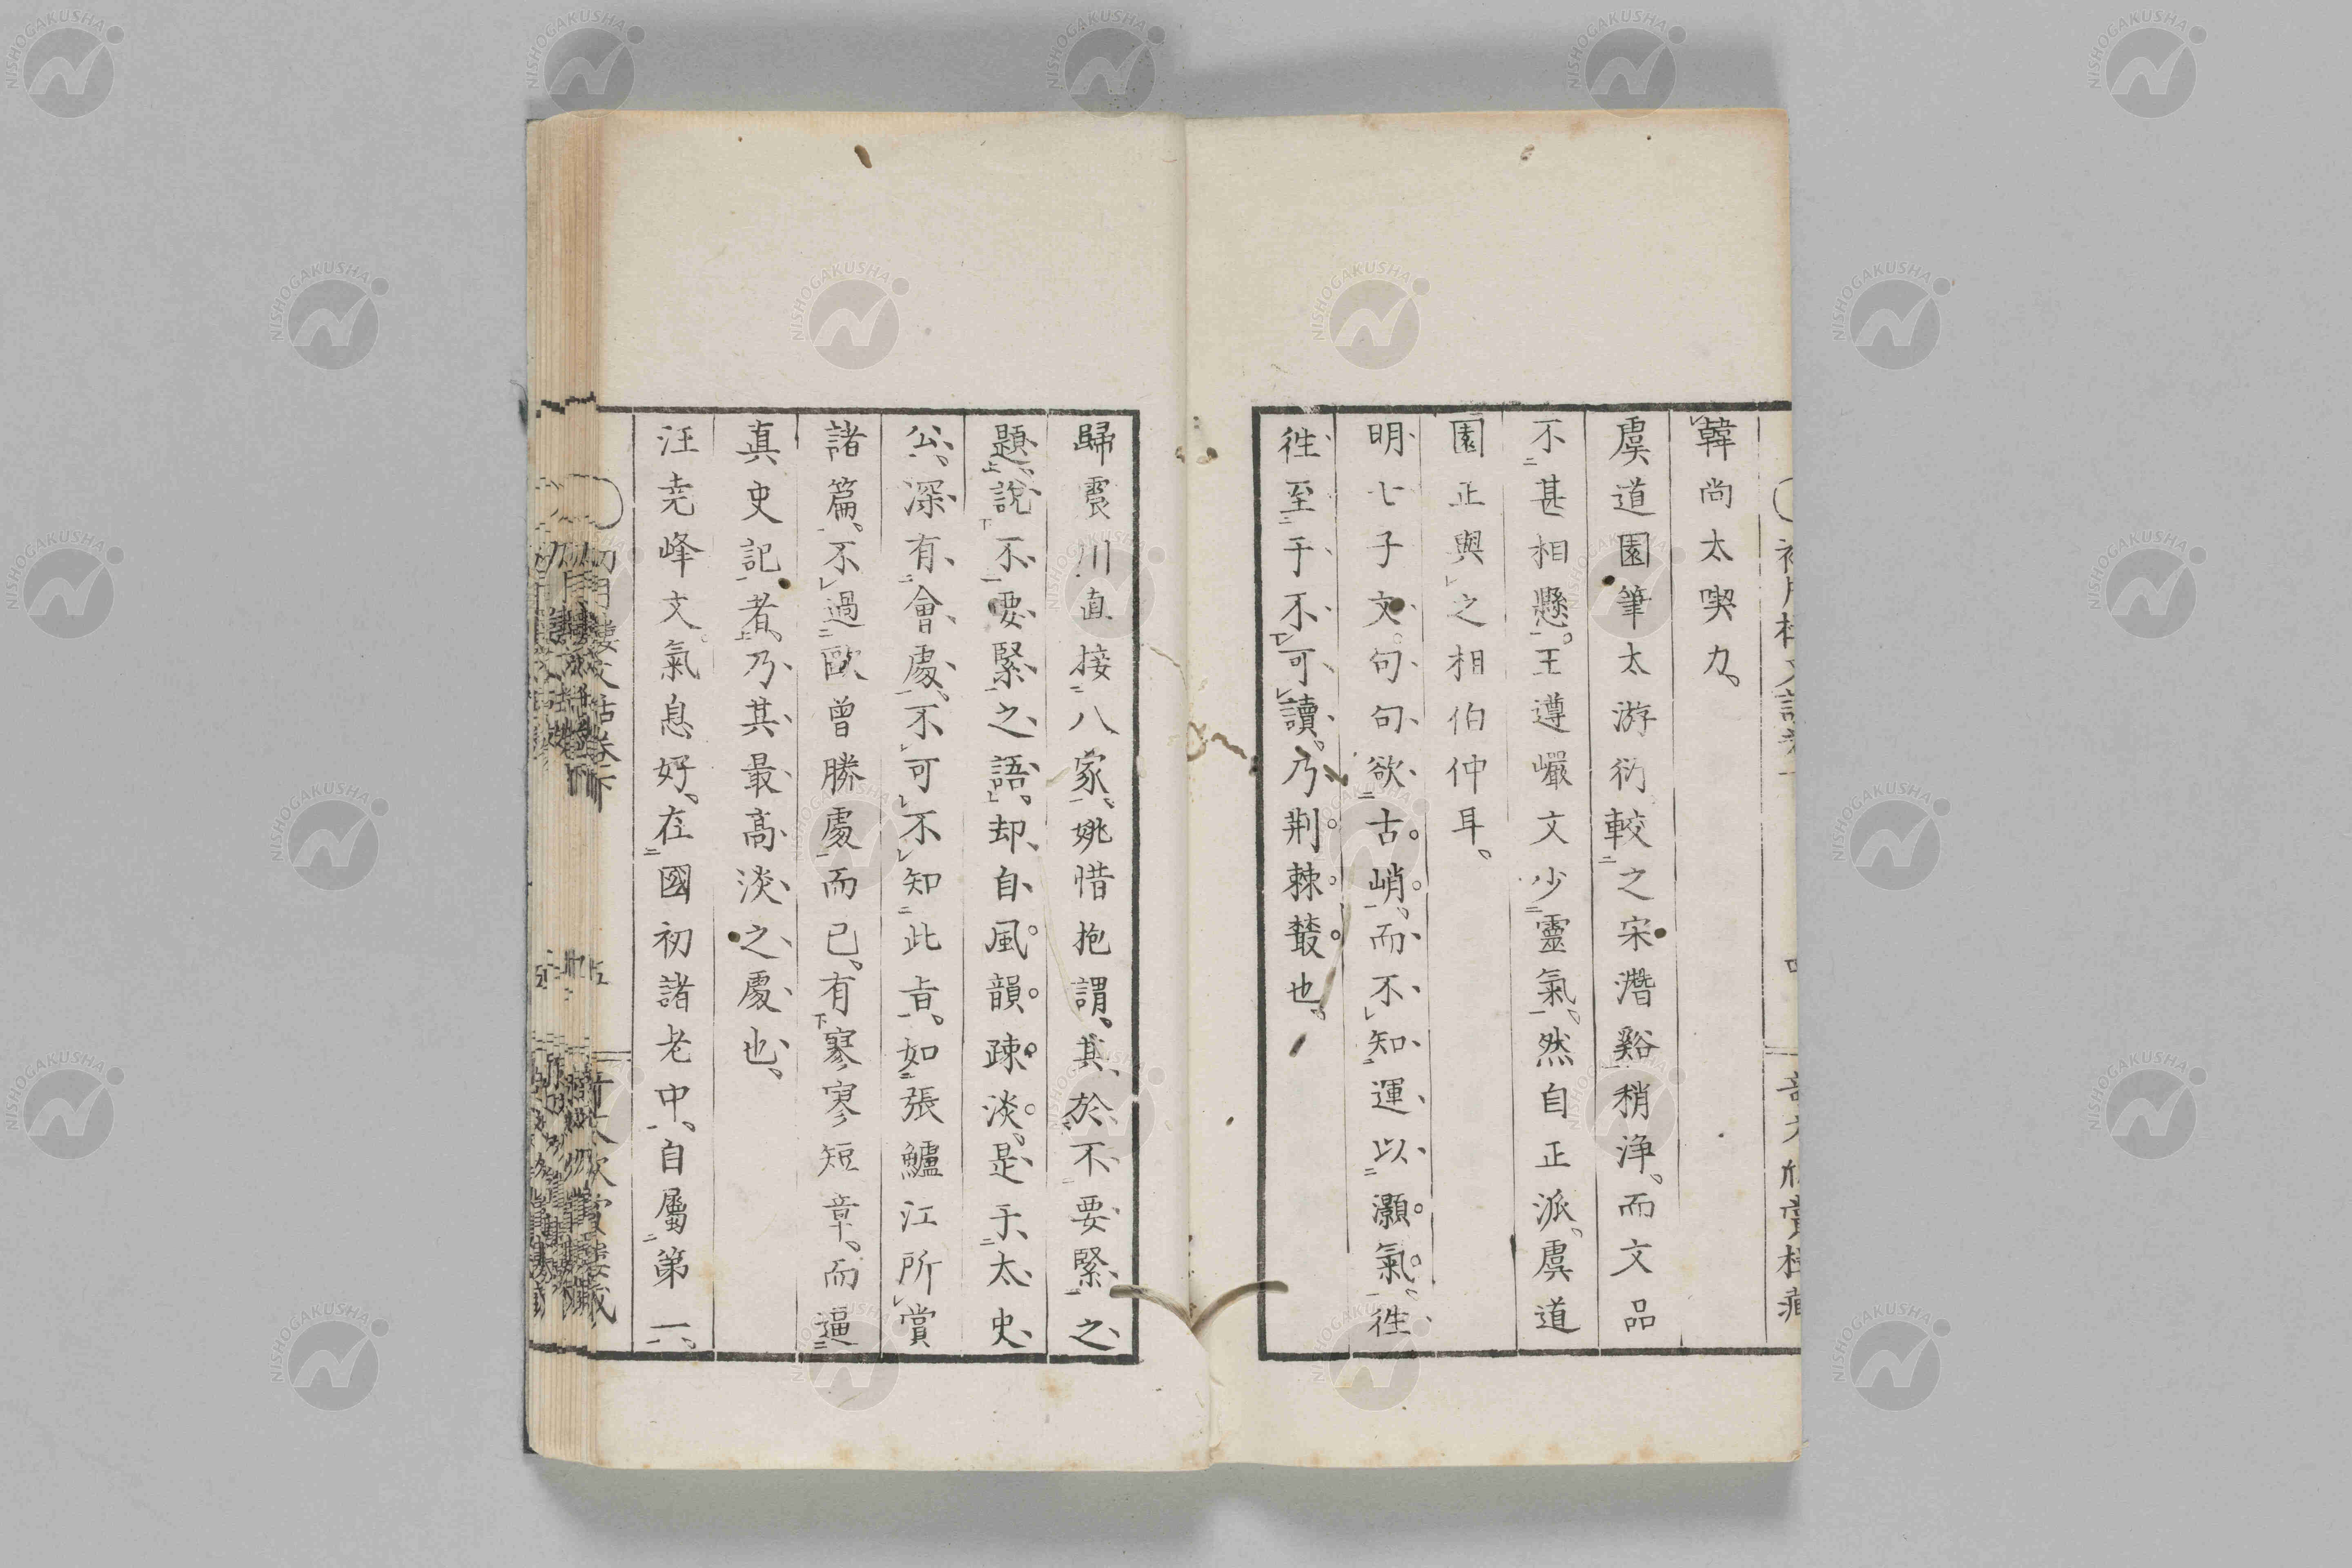 韓尚太喫力、
虞道園筆太游衍較之宋潛谿稍浄、而文品
不甚相懸。王遵巖文少靈氣、然自正派、虞道
園正與之相伯仲耳、
明七子文句句欲古峭、而不知運以灝氣、徃
徃至于不可讀、乃荆棘叢也、
歸震川直接八家、姚惜抱謂、其於不要緊之
題、說不要緊之語、却自風韻疎淡、是于太史
公、深有會處、不可不知此旨、如張鱸江所賞
諸篇、不過歐曾勝處而已、有寥寥短章、而逼
真史記者、乃其最高淡之處也、
汪尭峰文氣息好、在國初諸老中、自屬第一、
NISHOGAKUSHA